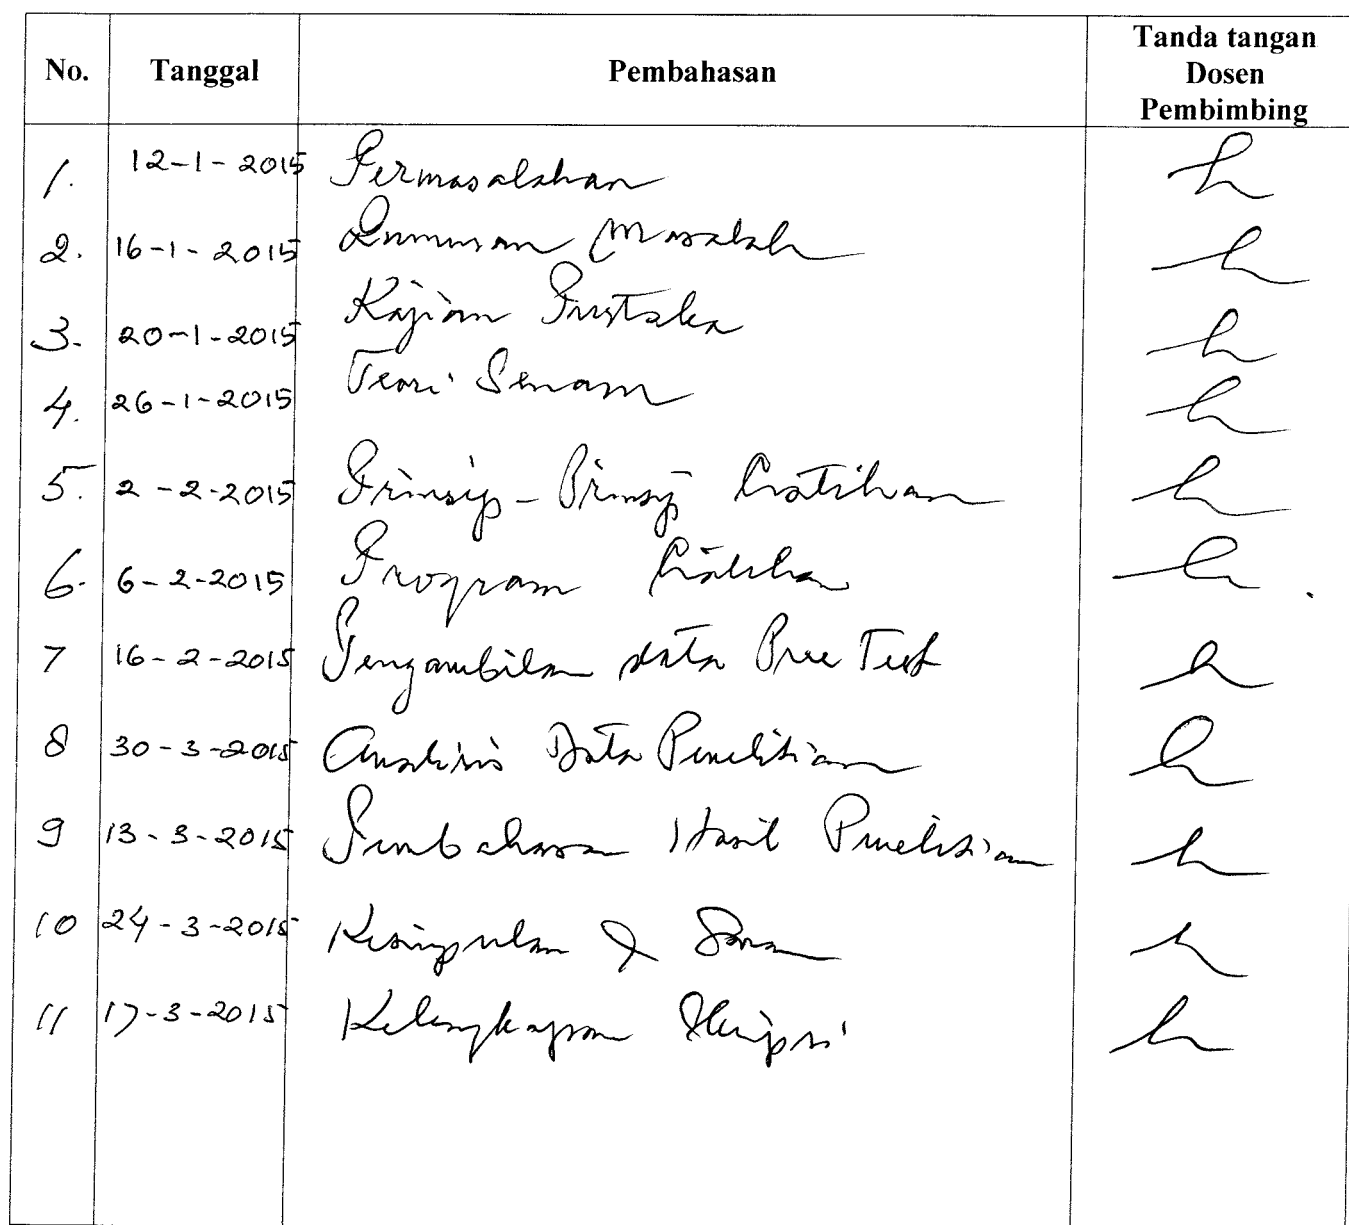 No. Tanggal Pembahasan Tanda tangan Dosen Pembimbing
1. 12-1-2015 Permasalahan
2. 16-1-2015 Rumusan Masalah
3. 20-1-2015 Kajian Pustaka
4. 26-1-2015 Teori Senam
5. 2-2-2015 Prinsip-Prinsip Latihan
6. 6-2-2015 Program Latihan
7 16-2-2015 Pengambilan data Pree Test
8 30-3-2015 Analisis Data Penelitian
9 13-3-2015 Pembahasan Hasil Penelitian
10 24-3-2015 Kesimpulan & Saran
11 17-3-2015 Kelengkapan Skripsi